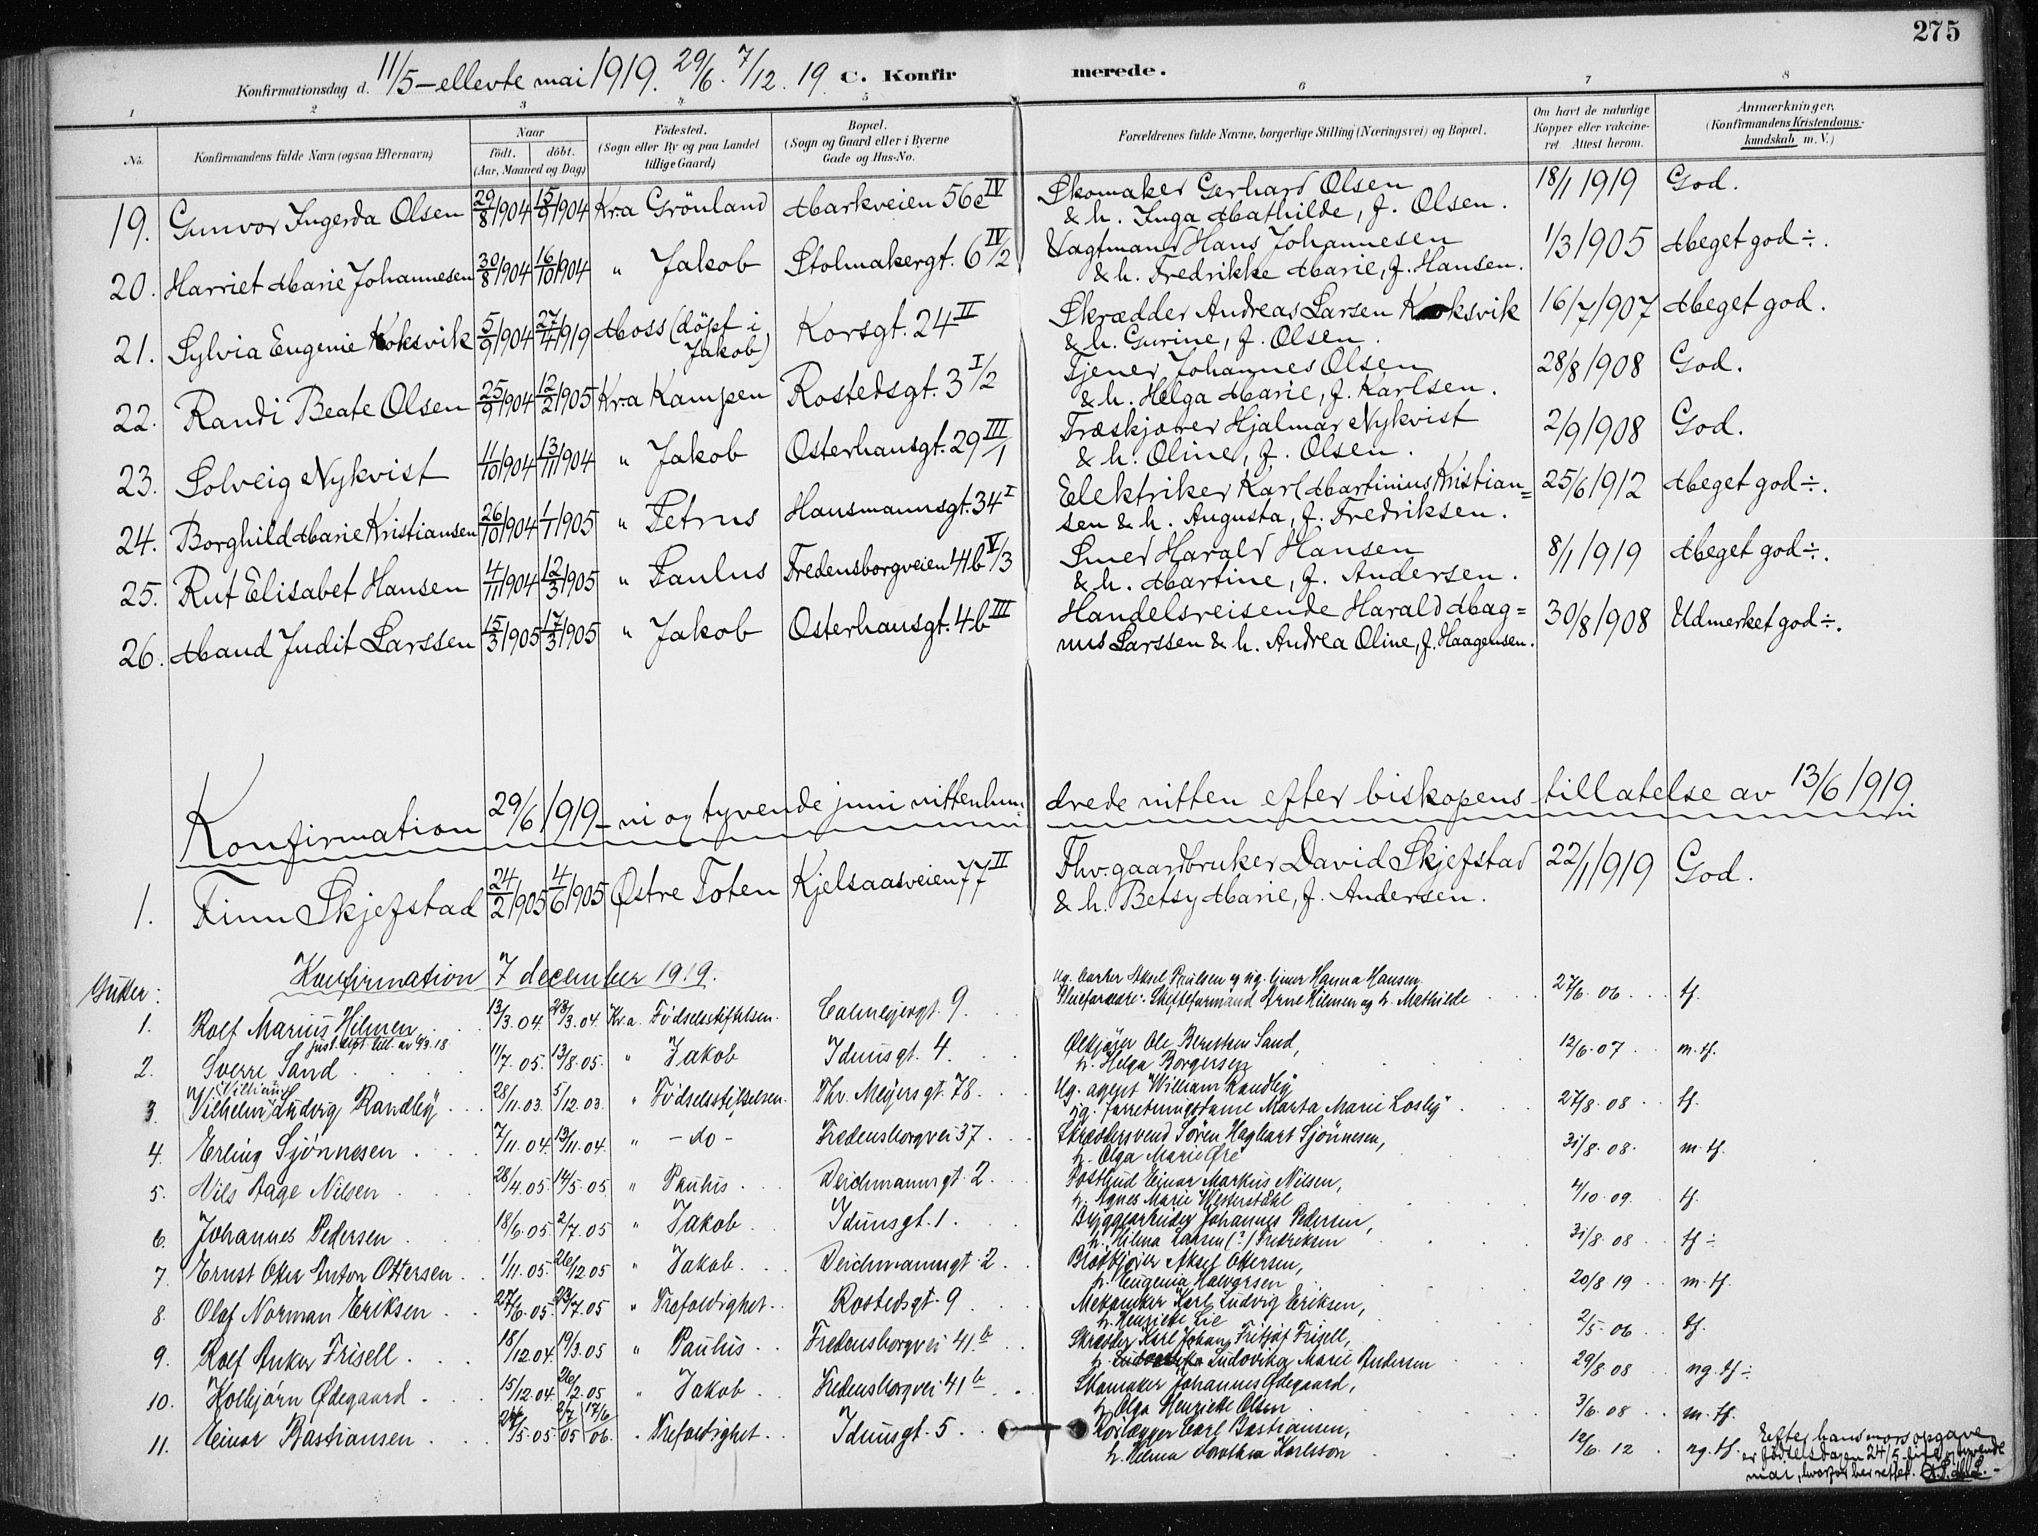 275
Konfirmationsdag d. 11/5 - ellevte mai 1919. 29/6. 7/12. 19. C. Konfirmerede.
1 2 3 4 5 6 7 8
No. Konfirmandens fulde Navn (ogsaa Efternavn) Naar födt. döbt. (Aar, Maaned og Dag) Födested. (Sogn eller By og paa Landet tillige Gaard) Bopæl. (Sogn og Gaard eller i Byerne Gade og Hus-No. Forældrenes fulde Navne, borgerlige Stilling (Næringsvei) og Bopæl. Om havt de naturlige Kopper eller vakcineret. Attest herom. Anmærkninger. (Konfirmandens Kristendomskundskab m. V.)
19. Gunvor Ingerda Olsen 29/8 1904 15/9 1904 Kra Grönland Markveien 56c IV Skomaker Gerhard Olsen 18/1 1919 God.
& h. Inga Mathilde, f. Olsen.
20. Harriet Marie Johannesen 30/8 1904 16/10 1904 " Jakob Stolmakergt. 6 IV/2 Vagtmand Hans Johannesen 1/3 1905 Meget god ÷.
& h. Fredrikke Marie, f. Hansen.
21. Sylvia Eugenie Koksvik 5/9 1904 27/4 1919 Moss (döpt i Jakob) Korsgt. 24 II Skrædder Andreas Larsen Koksvik 16/7 1907 Meget god.
& h. Gurine, f. Olsen.
22. Randi Beate Olsen 25/9 1904 12/2 1905 Kra Kampen Rostedsgt. 3 I/2 Tjener Johannes Olsen 28/8 1908 God.
& h. Helga Marie, f. Karlsen.
23. Solveig Nykvist 11/10 1904 13/11 1904 " Jakob Osterhausgt. 29 III/1 Træskjærer Hjalmar Nykvist 2/9 1908 God.
& h. Oline, f. Olsen.
24. Borghild Marie Kristiansen 26/10 1904 1/1 1905 " Petrus Hausmannsgt. 34 I Elektriker Karl Martinius Kristian= 25/6 1912 Meget god ÷.
sen & h. Augusta, f. Fredriksen.
25. Rut Elisabet Hansen 4/11 1904 12/3 1905 " Paulus Fredensborgveien 41b V/3 Smed Harald Hansen 8/1 1919 Meget god ÷.
& h. Martine, f. Andersen.
26. Maud Judit Larssen 15/3 1905 17/3 1905 " Jakob Osterhausgt. 4b III Handelsreisende Harald Mag= 30/8 1908 Udmerket god ÷.
nus Larssen & h. Andrea Oline, f. Haagensen.
Konfirmation 29/6 1919 - ni og tyvende juni nittenhundrede nitten efter biskopens tillatelse av 13/6 1919.
1. Finn Skjefstad 24/2 1905 4/6 1905 Østre Toten Kjelsaasveien 77 II Fhv. gaardbruker David Skjefstad 22/1 1919 God.
& h. Betsy Marie, f. Andersen.
Konfirmation 7 december 1919.
Gutter:
Ug. Aksel Paulsen og ug. Hanna Hansen
1. Rolf Marius Hilmen 13/3.04. 28/3.04. Kra. Födselsstiftelsen. Calmeyersgt. 9. Pleieforældre: Arne Hilmen og h. Mathilde 27/6.06. tf.
2. Sverre Sand 11/7.05. 13/8.05. " Jakob Idunsgt. 4. Ølkjører Ole Berntsen Sand, 12/6.07. m. tf.
h. Helga Borgersen
3. Vilhelm (William) Ludvig Randby 28/11.03. 5/12.03. " Födselsstiftelsen. Thv. Meyers gt. 78. Ug. agent William Randby 27/8.08. tf.
ug. forretningsdame Marta Marie Losby
4. Erling Sjønnesen 7/11.04. 13/11.04. " - do - Fredensborgvei 37. Skræddersvend Sören Hagbart Sjönnesen, 31/8.08. m. tf.
h. Olga Marie Øre
5. Nils Aage Nilsen 28/4.05. 14/5.05 " Paulus. Deichmannsgt 2. Postbud Einar Markus Nilsen, 4/10.09. tf.
h. Agnes Marie Westerståhl
6. Johannes Pedersen 18/6.05. 2/7.05 " Jakob. Idunsgt. 1. Byggearbeider Johannes Pedersen, 31/8.08. tf ÷
h. Hilma Larsen (?) Fredriksen
7. Ernst Otto Anton Ottersen. 1/11.05. 26/12.05 " Jakob. Deichmannsgt. 2. Brødkjører Aksel Ottersen, 20/8 19. m. tf.
h. Eugenia Halvorsen
8. Olaf Norman Eriksen 27/6.05. 23/7.05 " Trefoldighet. Rostedsgt. 9 Mekaniker Karl Ludvig Eriksen, 2/5.06. tf.
h. Henriette Lie
9. Rolf Anker Frisell. 18/12.04. 19/3.05 " Paulus. Fredensborgvei 41b. Skrædder Karl Johan Fritjof Frisell, 29/8 08. ng. tf ÷
h. Ludovika Marie Andersen
10. Kolbjörn Ødegaard 15/12.04. 26/2.05 " Jakob. Fredensborgvei 41b. Skomaker Johannes Ødegaard, 3/6.08. m. tf.
h. Olga Henriette Olsen
11. Einar Bastiansen 24/5.05 2/7 05 17/6 06. " Trefoldighet. Idunsgt. 5. Rørlægger Carl Bastiansen, 12/6.12 ng. tf.
h. Hilma Dorothea Karlsson
Efter hans mors opgave
er fødselsdagen 24/5 - fire og tyvende
mai, hvorfor her rettet.